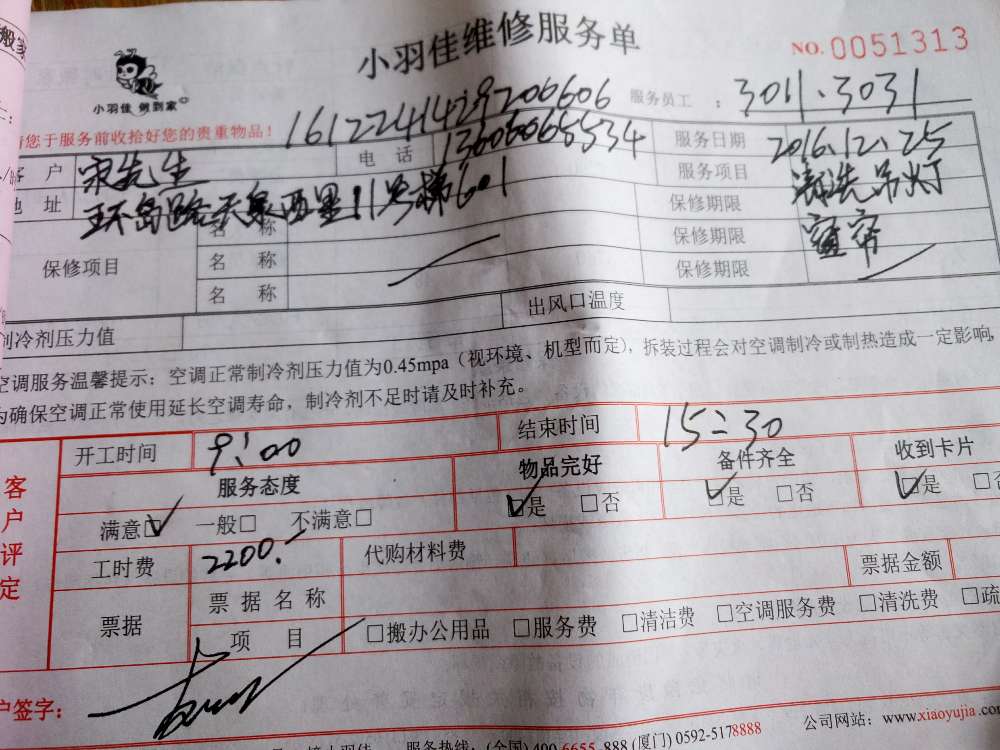 搬家
小羽佳维修服务单
NO.0051313
小羽佳 做到家
服务员工 : 3011.3031
请您于服务前收拾好您的贵重物品! 1612241429206606
客 户 宋先生 电 话 13606065534 服务日期 2016.12.25
地 址 环岛路天泉西里11号梯601 服务项目 清洗吊灯
保修期限 窗帘
保修项目
名 称 保修期限
名 称 保修期限
名 称
制冷剂压力值 出风口温度
空调服务温馨提示:空调正常制冷剂压力值为0.45mpa(视环境、机型而定),拆装过程会对空调制冷或制热造成一定影响,
为确保空调正常使用延长空调寿命,制冷剂不足时请及时补充。
客户评定
开工时间 9:00 结束时间 15:30
服务态度 物品完好 备件齐全 收到卡片
满意☑ 一般□ 不满意□ ☑是 □否 ☑是 □否 ☑是 □否
工时费 2200.- 代购材料费 票据金额
票据 票据名称
项 目 □搬办公用品 □服务费 □清洁费 □空调服务费 □清洗费 □疏
户签字:
服务热线:(全国)400-6655-888(厦门)0592-5178888 公司网站:www.xiaoyujia.com